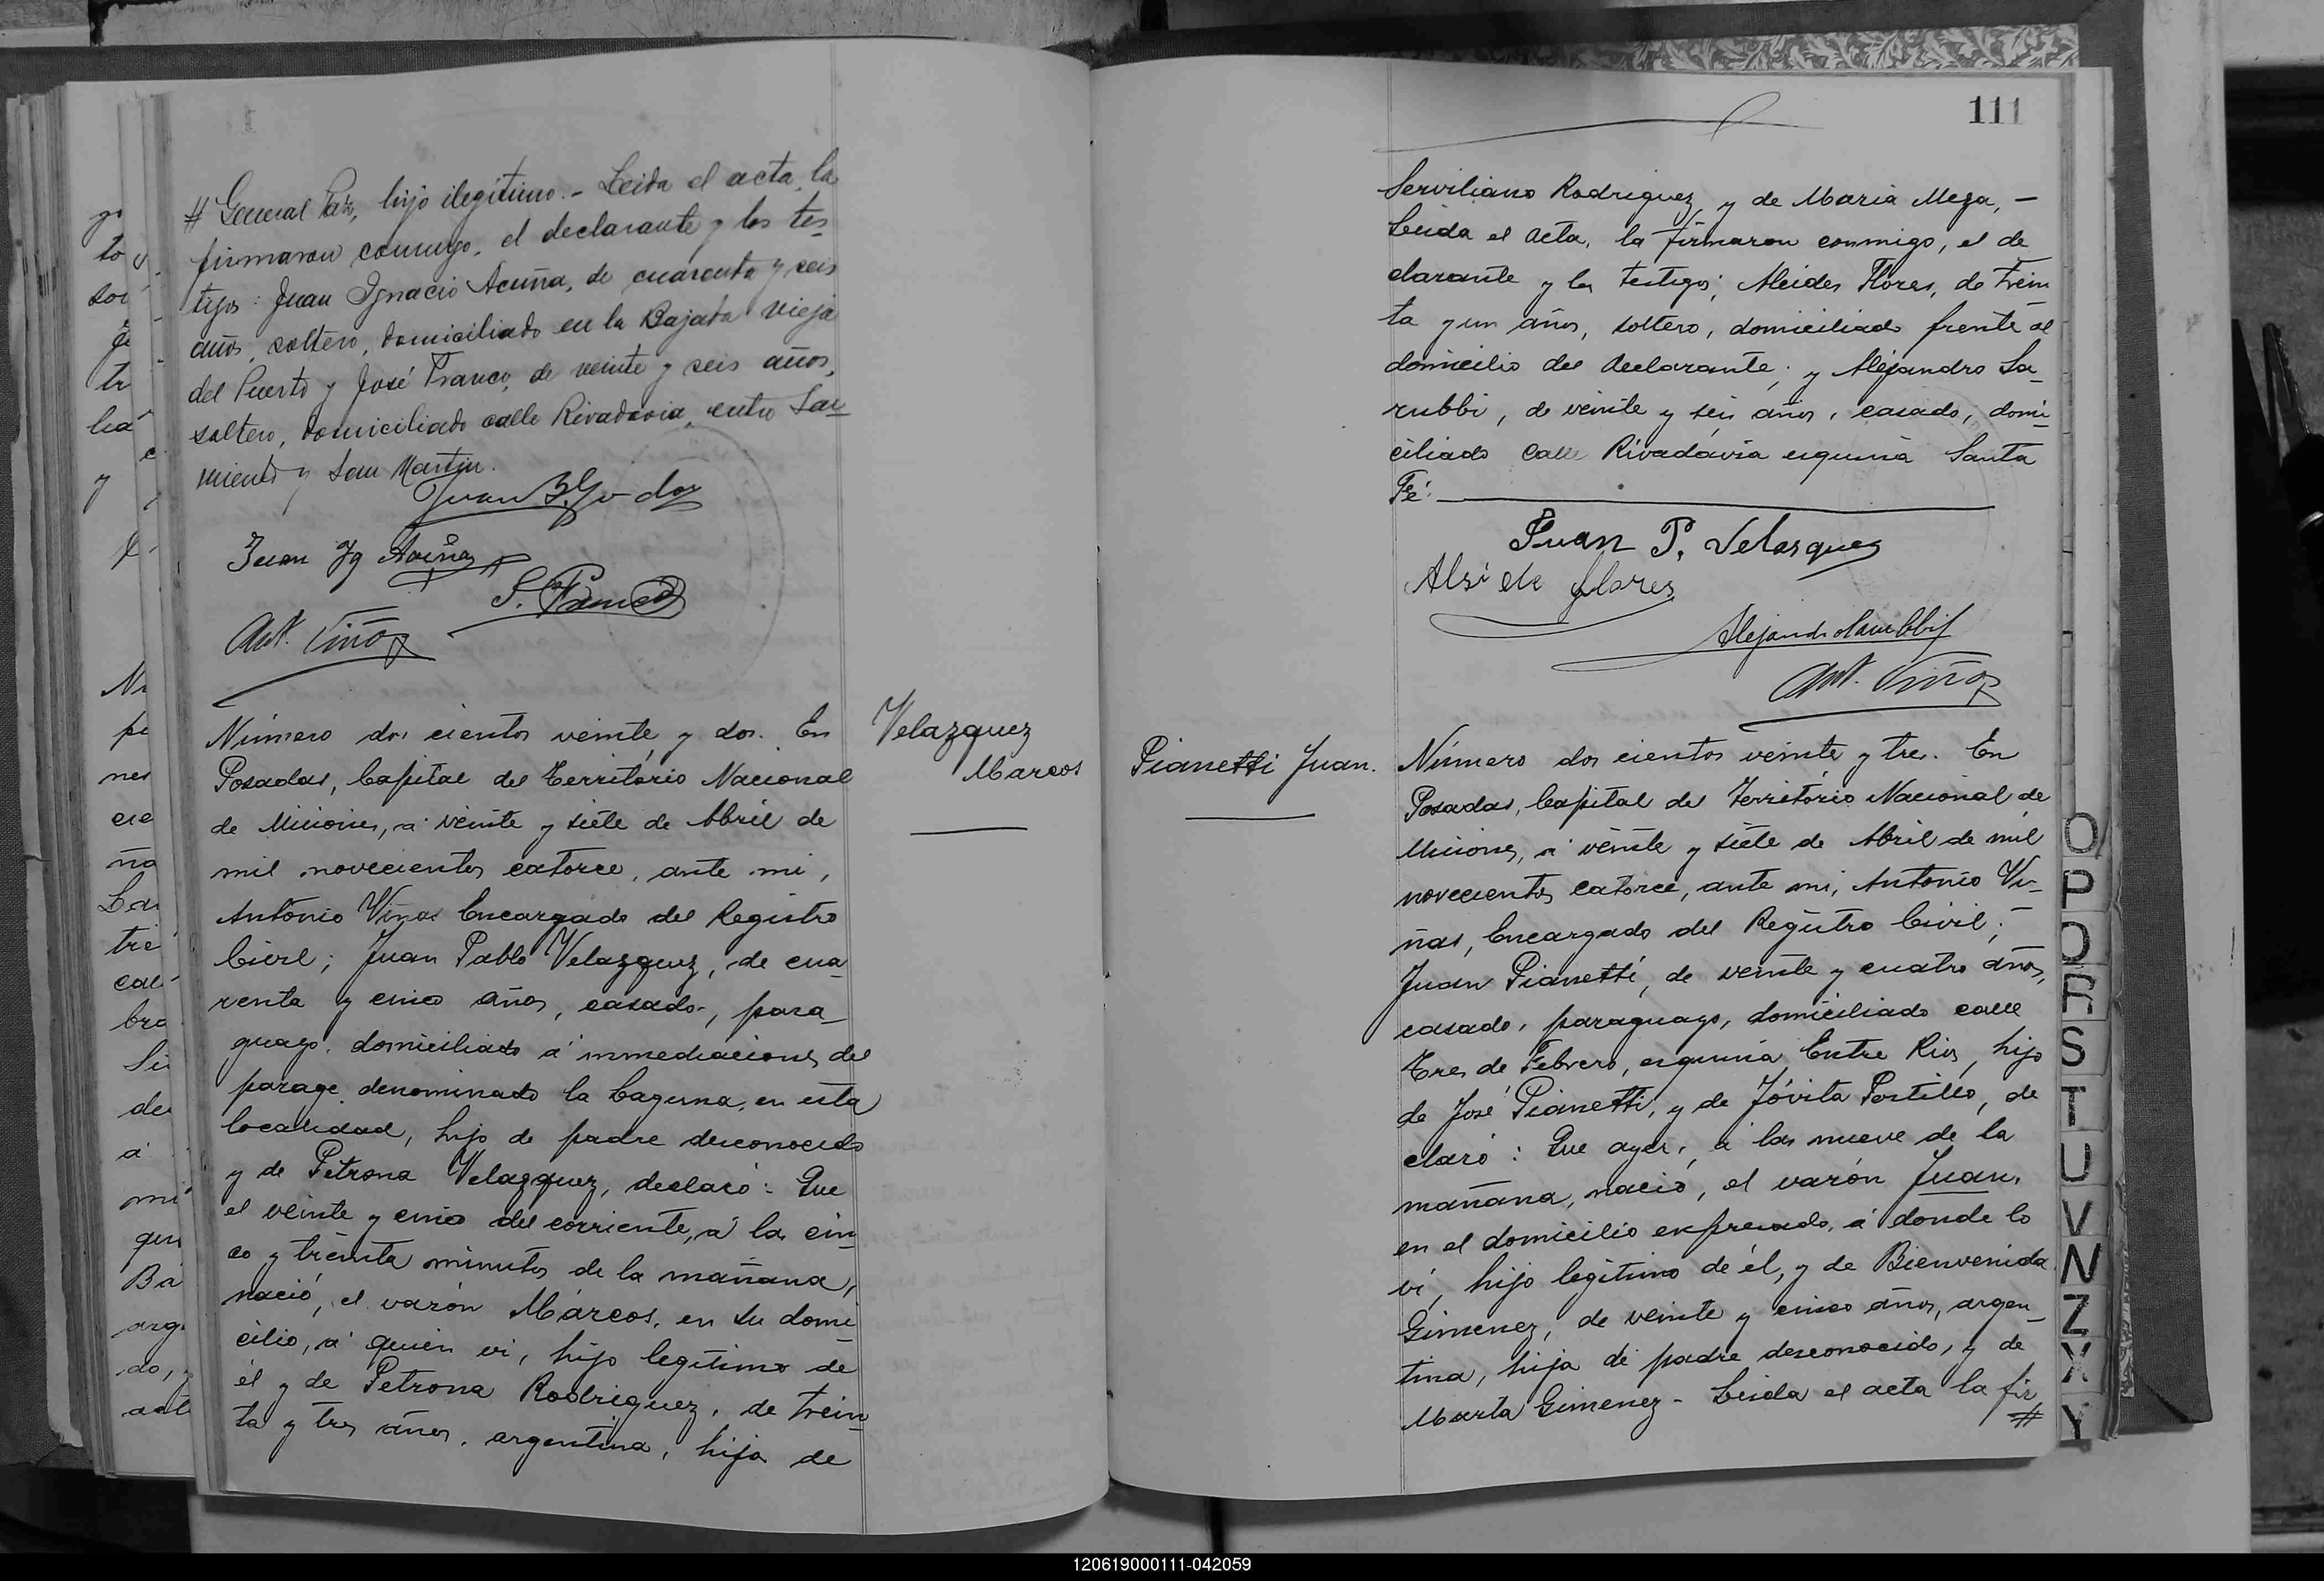 # General Paz, hijo ilegítimo.- Leida el acta, la
firmaron conmigo, el declarante y los tes-
tigos: Juan Ignacio Acuña, de cuarenta y seis
años, soltero, domiciliado en la Bajada vieja
del Puerto y José Franco, de veinte y seis años,
soltero, domiciliado calle Rivadavia, entre Sar-
miento y San Martin.
Juan
Juan Ig Acuña
Franco
Ant. Viñas
Número dos cientos veinte y dos. En
Posadas, Capital del Territorio Nacional
de Misiones, á veinte y siete de Abril de
mil novecientos catorce, ante mi,
Antonio Viñas Encargado del Registro
Civil; Juan Pablo Velazquez, de cua-
renta y cinco años, casado, para-
guayo, domiciliado á inmediaciones del
parage denominado la Laguna, en esta
localidad, hijo de padre desconocido
y de Petrona Velazquez, declaró: Que
el veinte y cinco del corriente, á las cin-
co y treinta minutos de la mañana,
nació, el varón Márcos, en su domi-
cilio, á quien vi, hijo legítimo de
él y de Petrona Rodriguez, de trein-
ta y tres años, argentina, hija de
Velazquez
Marcos
111
Serviliano Rodriguez y de Maria Meza, -
Leida el acta, la firmaron conmigo, el de
clarante y los testigos; Alcides Flores, de trein
ta y un años, soltero, domiciliado frente al
domicilio del declarante; y Alejandro Sa-
rubbi, de veinte y seis años, casado, domi-
ciliado calle Rivadavia esquina Santa
Fé.
Juan P. Velasquez
Alside flores
Alejandro Sarubbi
Ant. Viñas
Pianetti Juan.
Número dos cientos veinte y tres. En
Posadas, Capital del Territorio Nacional de
Misiones, á veinte y siete de Abril de mil
novecientos catorce, ante mi, Antonio Vi-
ñas, Encargado del Registro Civil;
Juan Pianetti, de veinte y cuatro años,
casado, paraguayo, domiciliado calle
Tres de Febrero, esquina Entre Rios, hijo
de José Pianetti, y de Jóvita Portillo, de
claró: Que ayer, á las nueve de la
mañana, nació, el varón Juan,
en el domicilio expresado, á donde lo
vi, hijo legítimo de él, y de Bienvenida
Gimenez, de veinte y cinco años, argen-
tina, hija de padre desconocido, y de
Marta Gimenez - Leida el acta la fir
#
O
P
Q
R
S
T
U
V
N
Z
X
Y
120619000111-042059